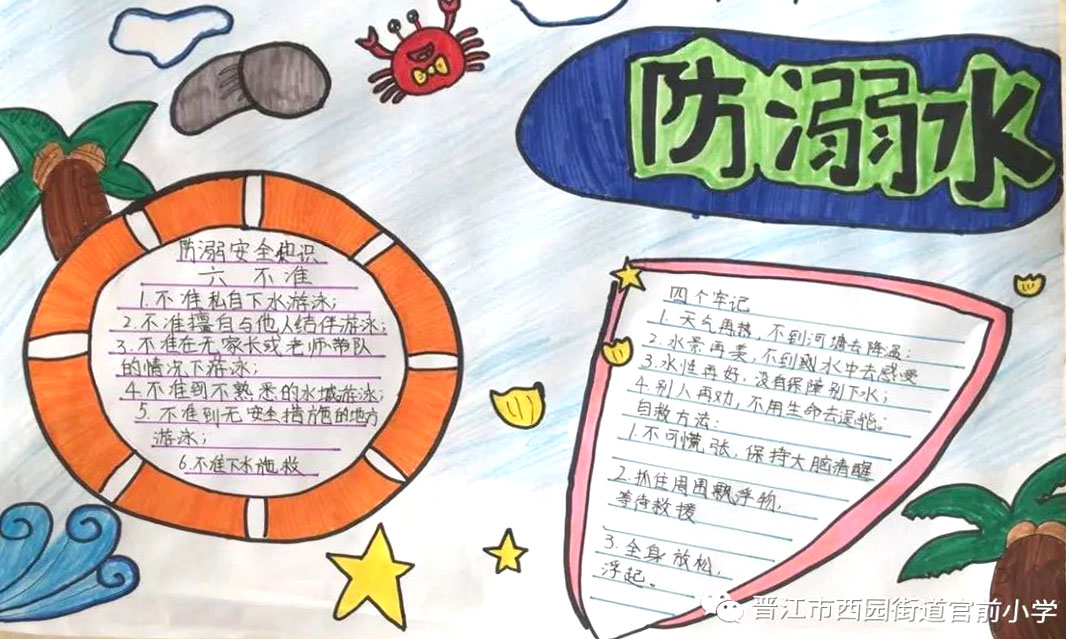 防溺水
防溺安全知识
六不准
1.不准私自下水游泳;
2.不准擅自与他人结伴游泳;
3.不准在无家长或老师带队
的情况下游泳;
4.不准到不熟悉的水域游泳;
5.不准到无安全措施的地方
游泳;
6.不准下水施救
四个牢记
1.天气再热,不到河塘去降温:
2.水景再美,不到刚水中去感受
3.水性再好,没有保障别下水;
4.别人再劝,不用生命去逞能。
自救方法:
1.不可慌张,保持大脑清醒
2.抓住周围飘浮物,
等待救援
3.全身放松,
浮起。
晋江市西园街道官前小学